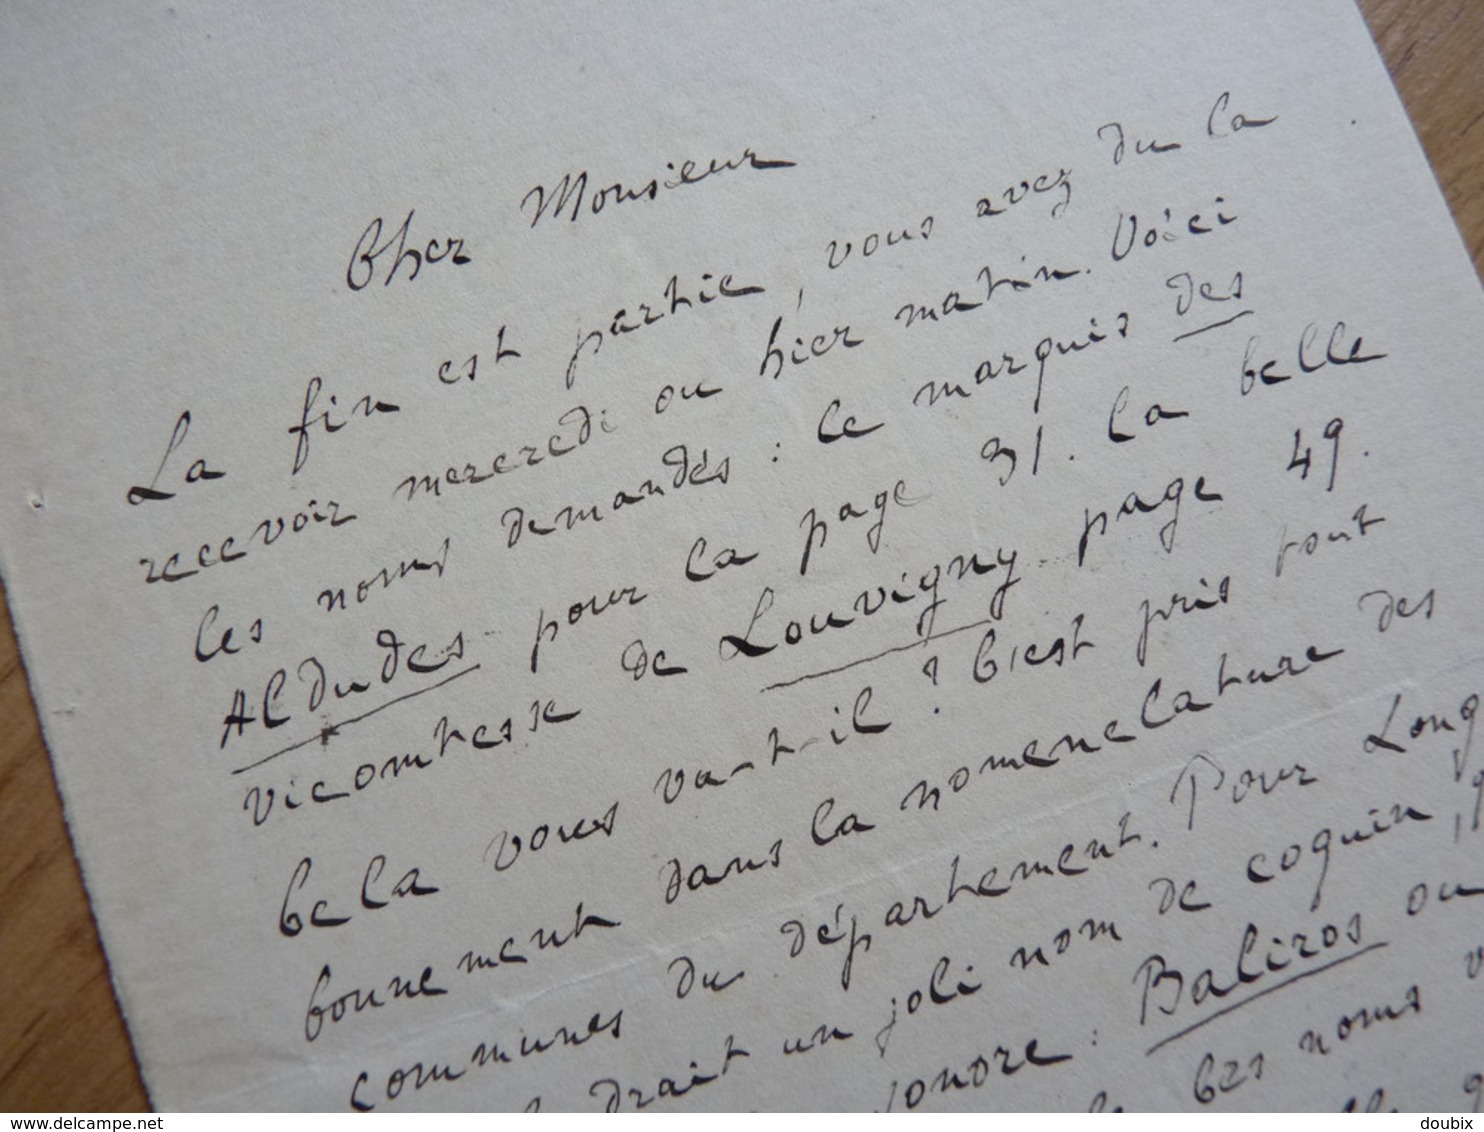 Cher Monsieur
La fin est partie, vous avez du la
recevoir mercredi ou hier matin. Voici
les noms demandés : le marquis des
Aldudes pour la page 31. la belle
vicomtesse de Louvigny page 49.
Cela vous va-t-il ? C'est pris tout
bonnement dans la nomenclature des
communes du département. Pour Long
drait un joli nom de coquin,
sonore : Baliros ou
Ces noms
delcampe.net
doubix